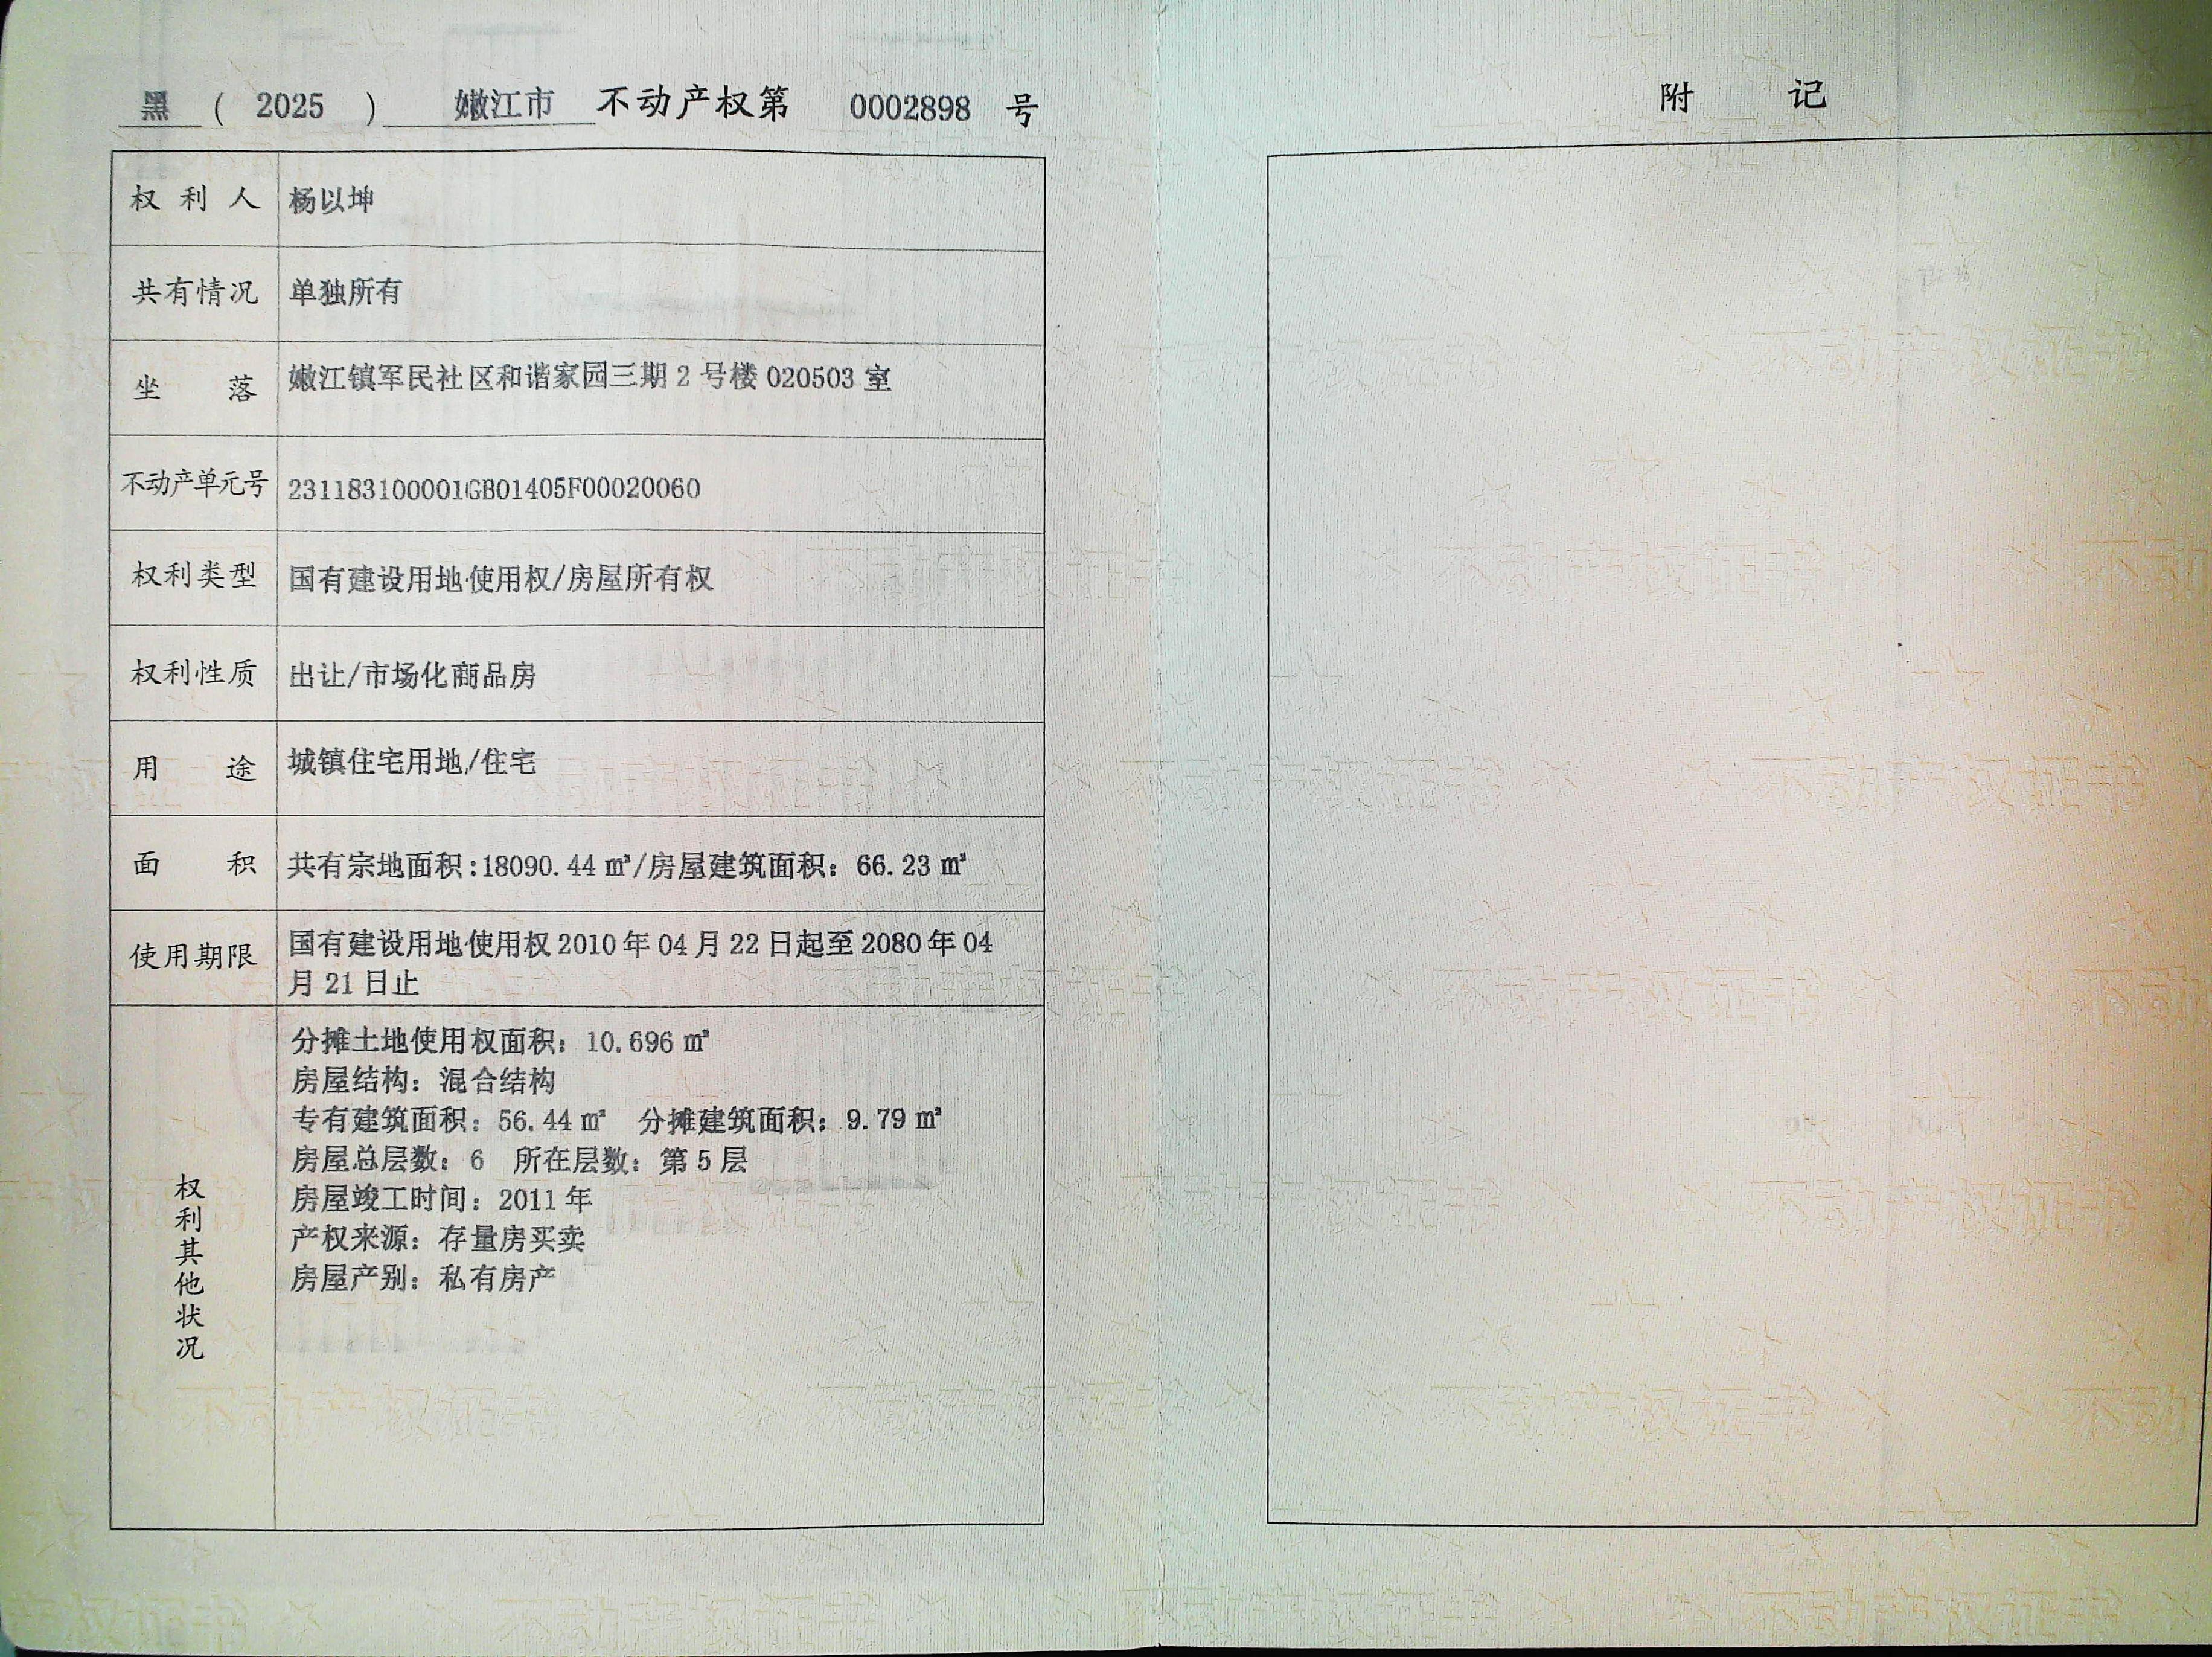 黑 ( 2025 ) 嫩江市 不动产权第 0002898 号
权利人 杨以坤
共有情况 单独所有
坐落 嫩江镇军民社区和谐家园三期 2 号楼 020503 室
不动产单元号 231183100001GB01405F00020060
权利类型 国有建设用地使用权/房屋所有权
权利性质 出让/市场化商品房
用途 城镇住宅用地/住宅
面积 共有宗地面积:18090.44 ㎡/房屋建筑面积: 66.23 ㎡
使用期限 国有建设用地使用权 2010 年 04 月 22 日起至 2080 年 04
月 21 日止
权利其他状况
分摊土地使用权面积: 10.696 ㎡
房屋结构: 混合结构
专有建筑面积: 56.44 ㎡ 分摊建筑面积: 9.79 ㎡
房屋总层数: 6 所在层数: 第 5 层
房屋竣工时间: 2011 年
产权来源: 存量房买卖
房屋产别: 私有房产
附记